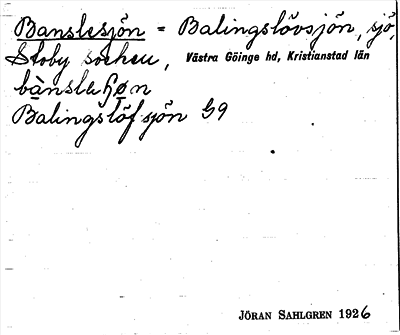 Banslesjön = Balingslövsjön, sjö,
Stoby socken, Västra Göinge hd, Kristianstad län
Balingslöf sjön G9
JÖRAN SAHLGREN 1926